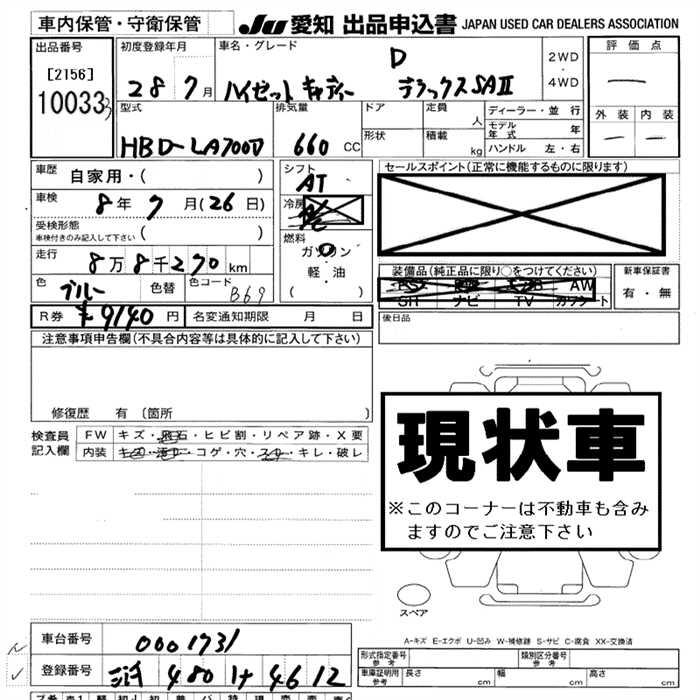 車内保管・守衛保管
JU 愛知 出品申込書 JAPAN USED CAR DEALERS ASSOCIATION
出品番号
[2156]
10033
初度登録年月
28 7月
車名・グレード
D
ハイゼットキャディー デラックスSAⅡ
2WD
4WD
評価点
外装 内装
型式
HBD-LA700D
排気量
660 CC
ドア
形状
定員 人
積載 kg
ディーラー・並行
モデル年式 年
ハンドル 左・右
車歴
自家用・( )
車検
8年7月(26日)
受検形態
車検付きのみ記入して下さい ( )
走行
8万8千270km
色
ブルー
色替
色コード
B69
シフト
AT
冷房
燃料
ガソリン
軽・油
( )
セールスポイント(正常に機能するものに限ります)
装備品(純正品に限り○をつけてください)
AW
ナビ TV
新車保証書
有・無
R券 ¥9140円
名変通知期限 月 日
後日品
注意事項申告欄(不具合内容等は具体的に記入して下さい)
修復歴 有 〔箇所 〕
検査員記入欄
FW キズ・飛石・ヒビ割・リペア跡・X要
内装 コゲ・穴・スレ・キレ・破レ
現状車
※このコーナーは不動車も含み
ますのでご注意下さい
スペア
A-キズ E-エクボ U-凹み W-補修跡 S-サビ C-腐食 XX-交換済
車台番号
0001731
登録番号
480 4612
形式指定番号
参考
類別区分番号
参考
車庫証明用
参考
長さ cm
幅 cm
高さ cm